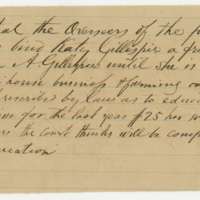 that the Overseers of the p
bind Katy Gillespie a fr
A. Gillespie until she is
house business & farming
prescribed by law as to educ
for the last year $25 
the court thinks will be comp
ucation